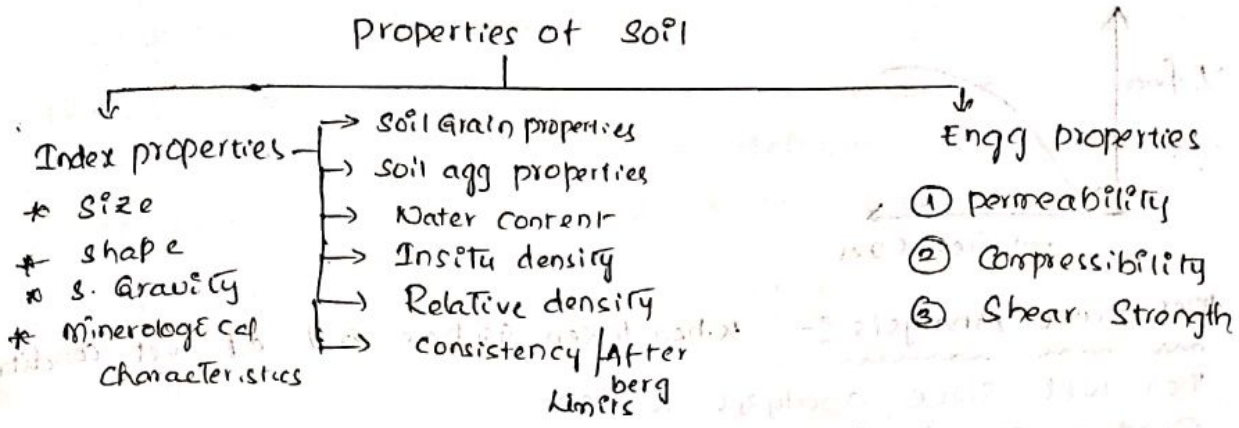 Properties of Soil
Index properties
* Size
* shape
* S. Gravity
* Minerological
characteristics
→ Soil Grain properties
→ Soil agg properties
→ Water content
→ Insitu density
→ Relative density
→ consistency / Atter
berg
Limits
Engg properties
① permeability
② Compressibility
③ Shear Strength